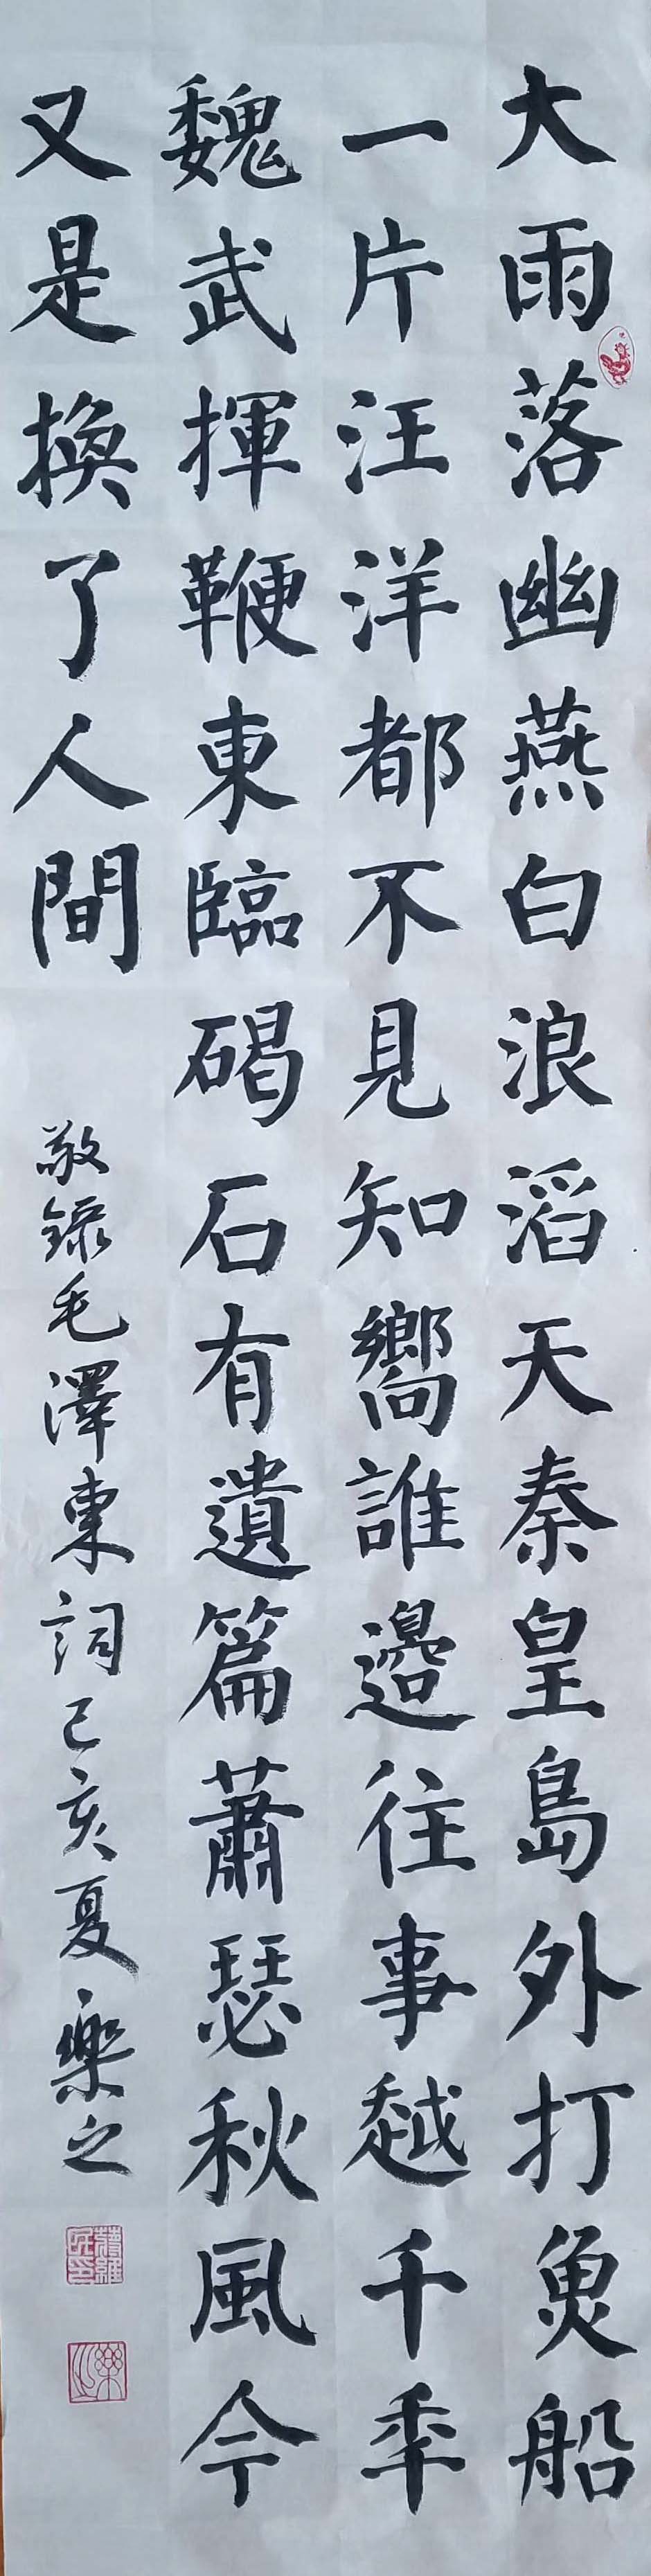 大雨落幽燕白浪滔天秦皇島外打魚船
一片汪洋都不見知嚮誰邊往事越千年
魏武揮鞭東臨碣石有遺篇蕭瑟秋風今
又是換了人間
敬錄毛澤東詞己亥夏樂之